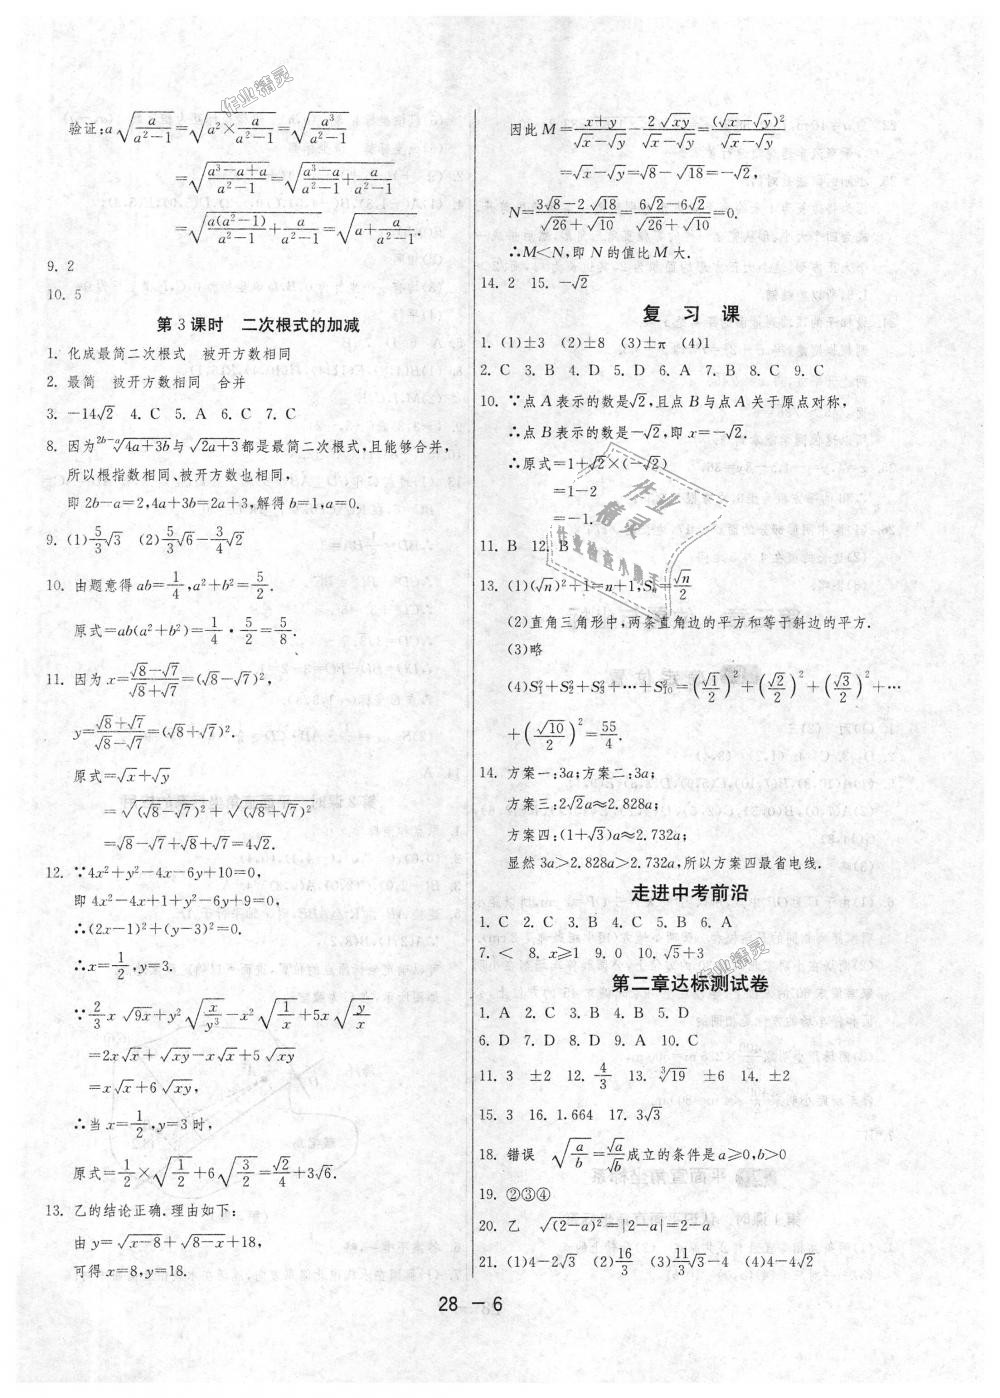 验证:a√(a/(a²-1))=√(a²×a/(a²-1))=√(a³/(a²-1))
=√((a³-a+a)/(a²-1))=√((a³-a)/(a²-1)+a/(a²-1))
=√(a(a²-1)/(a²-1)+a/(a²-1))=√(a+a/(a²-1)).
9. 2
10. 5
第3课时 二次根式的加减
1. 化成最简二次根式 被开方数相同
2. 最简 被开方数相同 合并
3. -14√2 4. C 5. A 6. C 7. C
8. 因为 ²ᵇ⁻ᵃ√(4a+3b)与 √(2a+3)都是最简二次根式,且能够合并,
所以根指数相同、被开方数也相同,
即 2b-a=2,4a+3b=2a+3,解得 b=1,a=0.
9. (1)5/3√3 (2)5/3√6-3/4√2
10. 由题意得 ab=1/4,a²+b²=5/2.
原式=ab(a²+b²)=1/4·5/2=5/8.
11. 因为 x=(√8-√7)/(√8+√7)=(√8-√7)²,
y=(√8+√7)/(√8-√7)=(√8+√7)².
原式=√x+√y
=√((√8-√7)²)+√((√8+√7)²)
=√8-√7+√8+√7=4√2.
12. ∵4x²+y²-4x-6y+10=0,
即 4x²-4x+1+y²-6y+9=0,
∴(2x-1)²+(y-3)²=0.
∴x=1/2,y=3.
∵2/3x√(9x)+y²√(x/y³)-x²√(1/x)+5x√(y/x)
=2x√x+√(xy)-x√x+5√(xy)
=x√x+6√(xy),
∴当 x=1/2,y=3时,
原式=1/2×√(1/2)+6√(3/2)=√2/4+3√6.
13. 乙的结论正确.理由如下:
由 y=√(x-8)+√(8-x)+18,
可得 x=8,y=18.
因此 M=(x+y)/(√x-√y)-2√(xy)/(√x-√y)=(√x-√y)²/(√x-√y)
=√x-√y=√8-√18=-√2,
N=(3√8-2√18)/(√26+√10)=(6√2-6√2)/(√26+√10)=0.
∴M<N,即 N 的值比 M 大.
14. 2 15. -√2
复 习 课
1. (1)±3 (2)±8 (3)±π (4)1
2. C 3. B 4. D 5. D 6. A 7. B 8. C 9. C
10. ∵点 A 表示的数是√2,且点 B 与点 A 关于原点对称,
∴点 B 表示的数是-√2,即 x=-√2.
∴原式=1+√2×(-√2)
=1-2
=-1.
11. B 12. B
13. (1)(√n)²+1=n+1,Sₙ=√n/2
(2)直角三角形中,两条直角边的平方和等于斜边的平方.
(3)略
(4)S₁²+S₂²+S₃²+…+S₁₀²=(√1/2)²+(√2/2)²+(√3/2)²+…
+(√10/2)²=55/4.
14. 方案一:3a;方案二:3a;
方案三:2√2a≈2.828a;
方案四:(1+√3)a≈2.732a;
显然 3a>2.828a>2.732a,所以方案四最省电线.
走进中考前沿
1. C 2. C 3. B 4. C 5. B 6. A
7. < 8. x≥1 9. 0 10. √5+3
第二章达标测试卷
1. A 2. C 3. B 4. B 5. D
6. D 7. D 8. D 9. A 10. C
11. 3 ±2 12. -4/3 13. ³√19 ±6 14. ±2
15. 3 16. 1.664 17. 3√3
18. 错误 √(a/b)=√a/√b成立的条件是 a≥0,b>0
19. ②③④
20. 乙 √((2-a)²)=|2-a|=2-a
21. (1)4-2√3 (2)16/3 (3)11/3√3-4 (4)4-4√2
28 - 6
作业精灵
作业
精灵
作业检查小助手
作业精灵